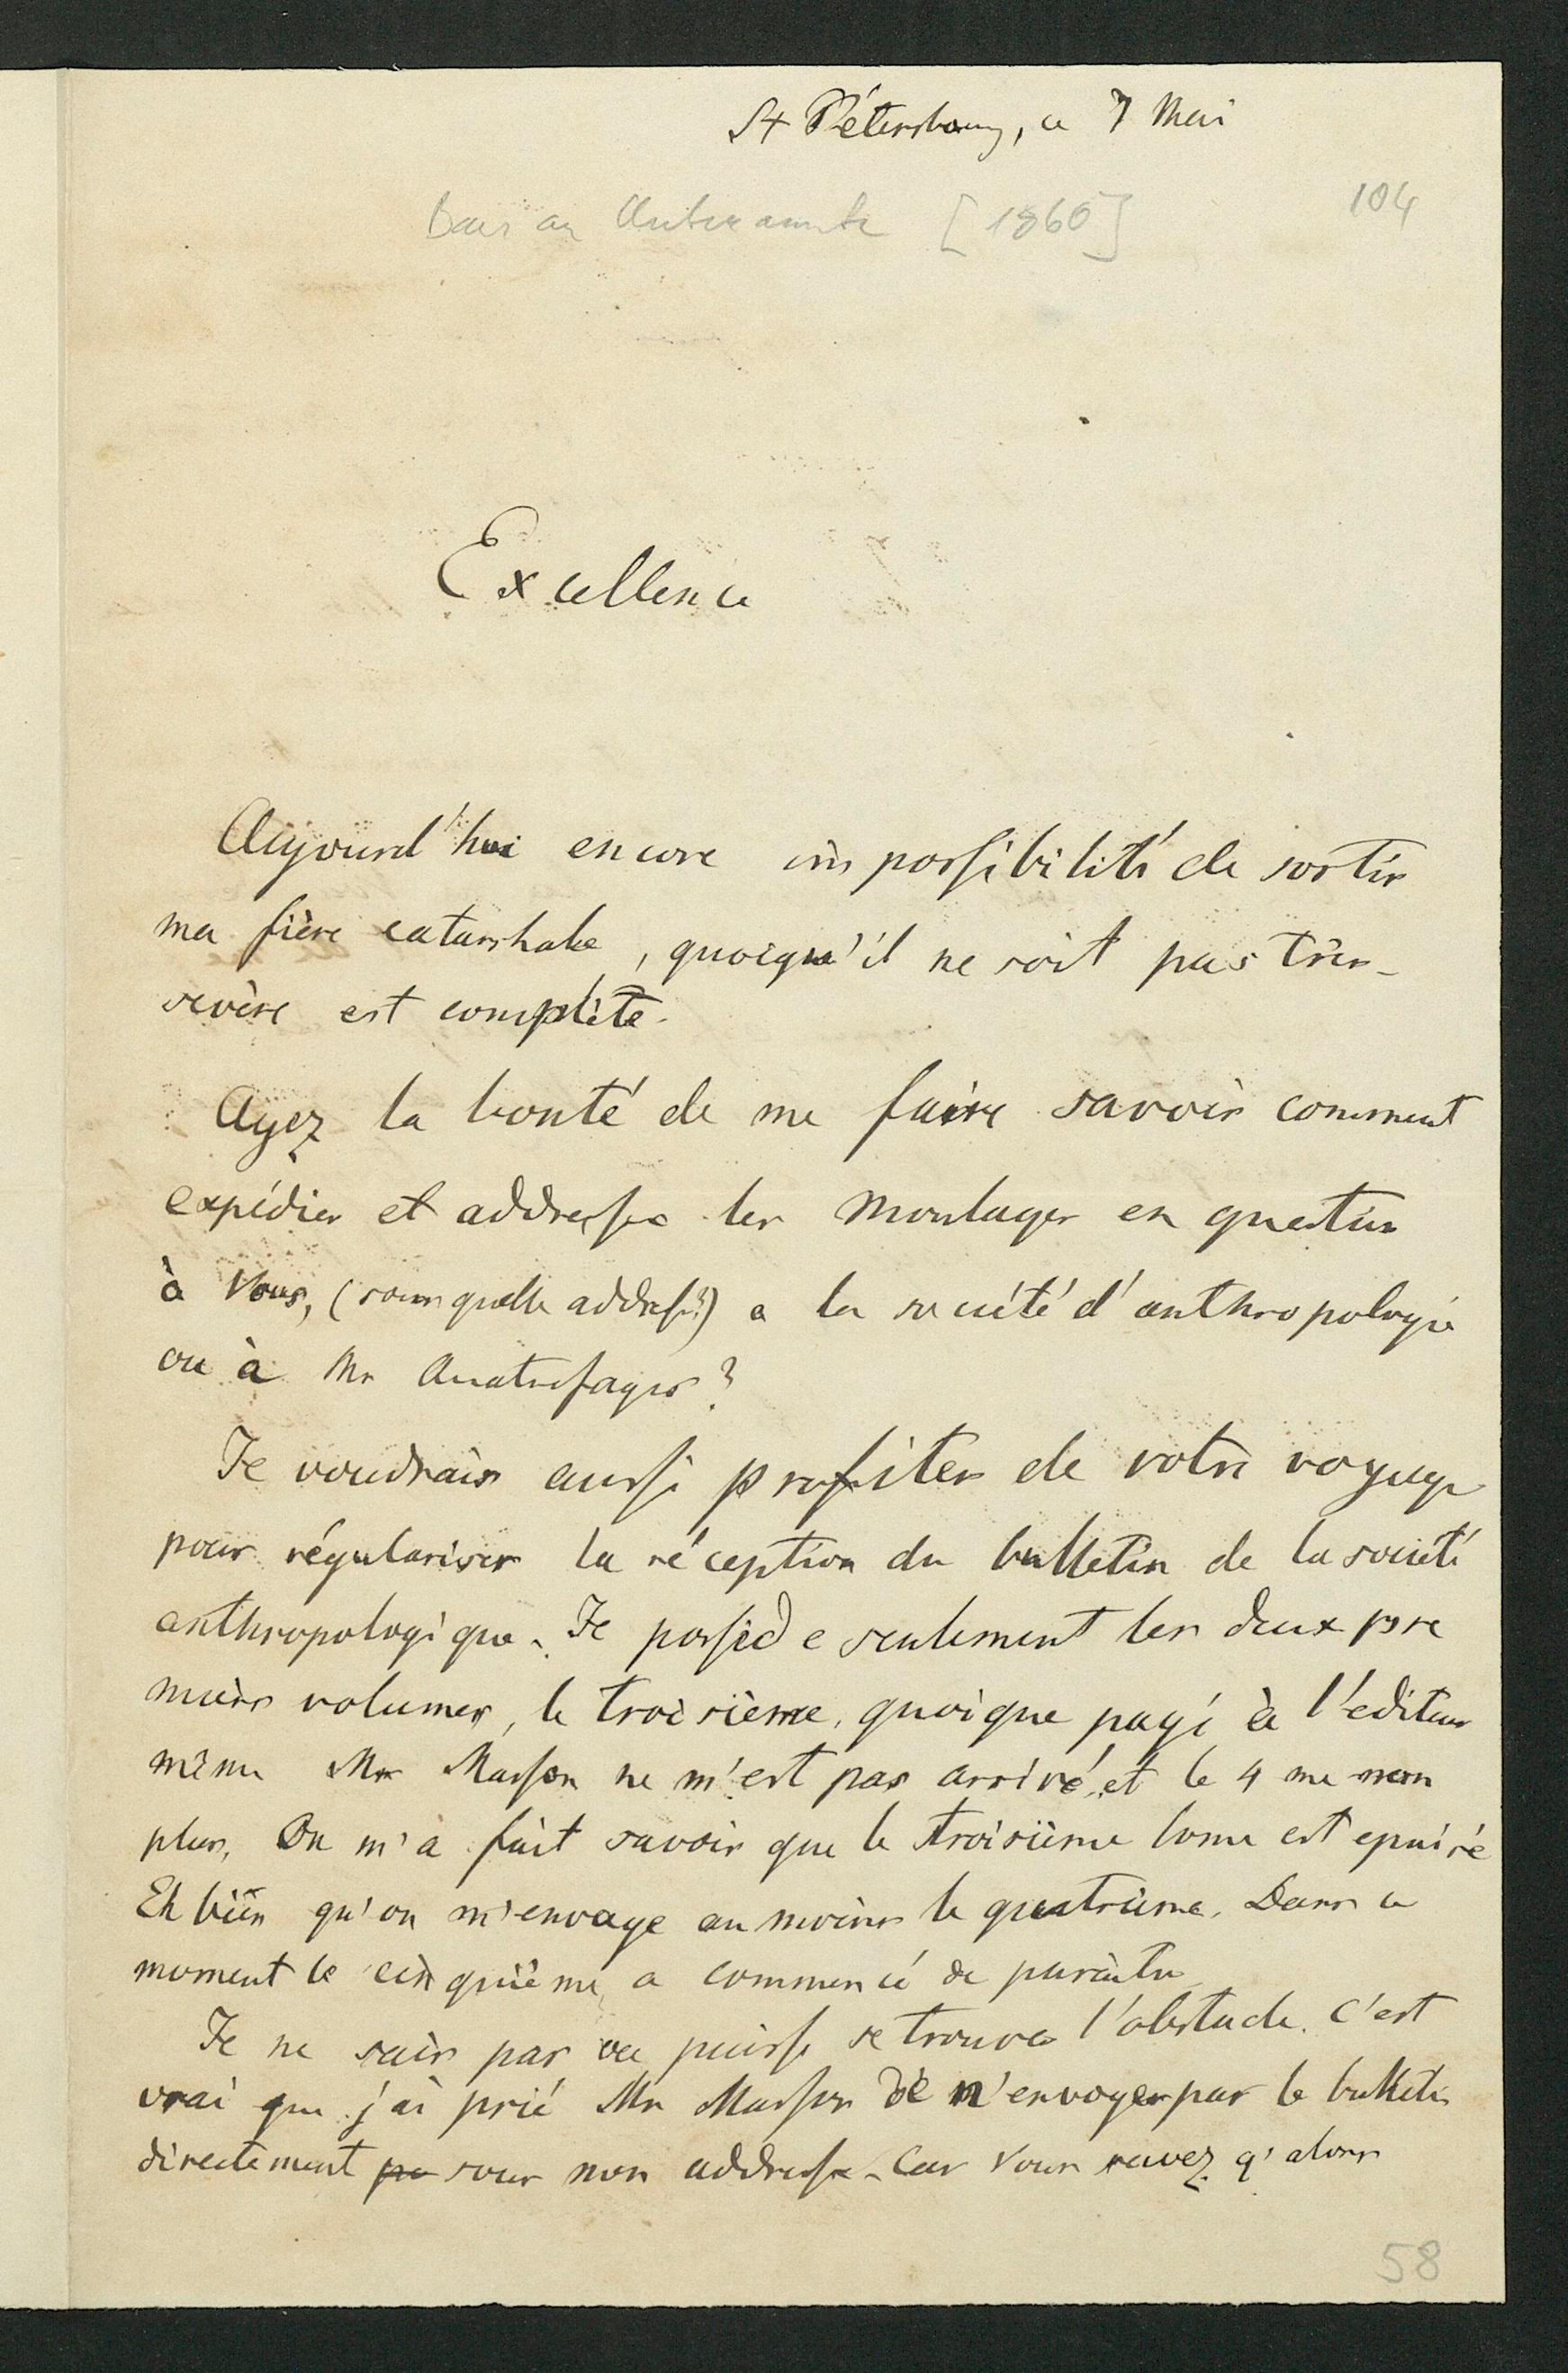 St Pétersbourg, ce 7 Mai
Baer an Unbekannte [1860]
104
Excellence
Aujourd'hui encore impossibilité de sortir
ma fièvre catarrhale, quoiqu'il ne soit pas très-
sevère est complète.
Ayez la bonté de me faire savoir comment
expédier et addresser les Moulages en question
à Vous, (sous quelle addresse?) a la société d'anthropologie
ou à Mr Quatrefages?
Je voudrais aussi profiter de votre voyage
pour régulariser la réception du bulletin de la société
anthropologique. Je possède seulement les deux pre
miers volumes, le troisième, quoique payé à l'editeur
même Mr Masson ne m'est pas arrivé, et le 4 me non
plus. On m'a fait savoir que le troisième tome est epuisé
Eh bien qu'on m'envoye au moins le quatrième. Dans ce
moment le cinquième a commencé de paraitre
Je ne sais pas ou puisse se trouver l'obstacle. C'est
vrai que j'ai prié Mr Masson de n'envoyer pas le bulletin
directement sous mon addresse. Car Vous savez q'alors
58